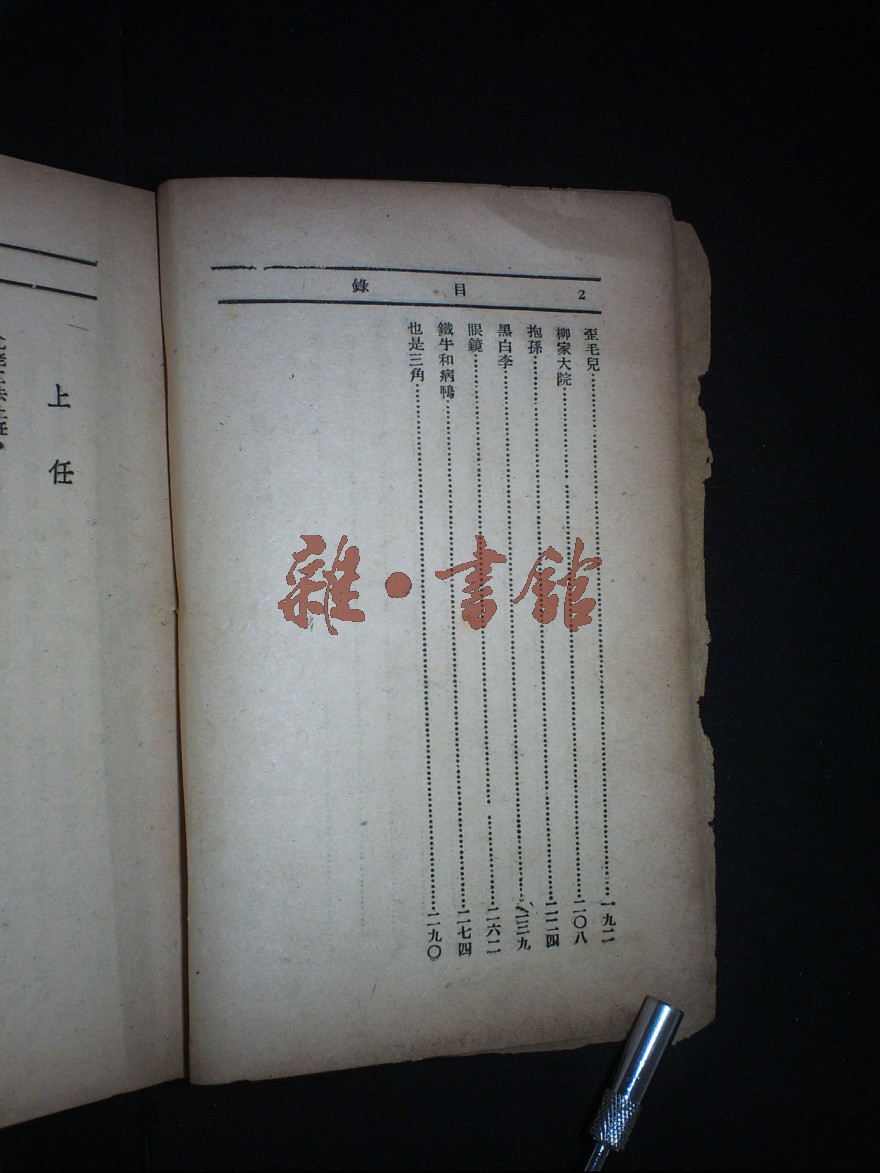 目錄 2
歪毛兒 一九二
柳家大院 二〇八
抱孫 二二四
黑白李 二三九
眼鏡 二六二
鐵牛和病鴨 二七四
也是三角 二九〇
上任
雜·書館